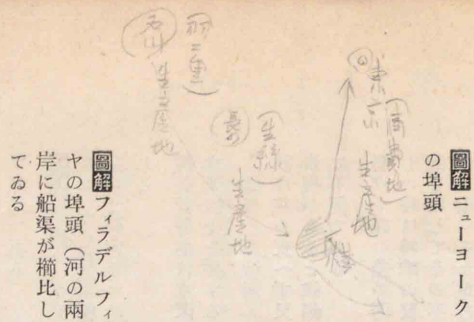 圖解 ニューヨーク
の埠頭
東京
(商賣地)
生産地
横
(生絲)
生産地
(羽二重)
生産地
圖解 フィラデルフィ
ヤの埠頭(河の兩
岸に船渠が櫛比し
てゐる